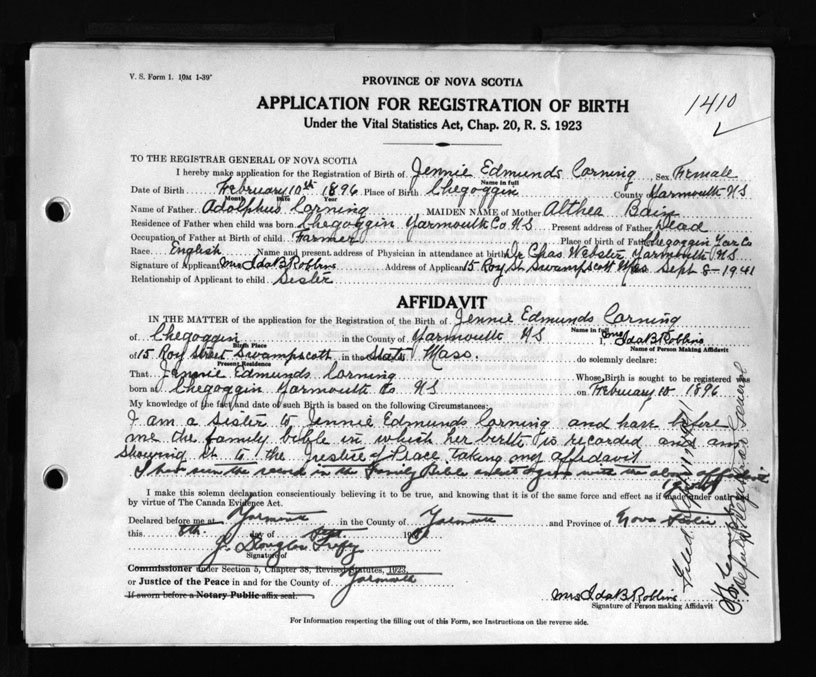 V. S. Form 1. 10M 1-39"
PROVINCE OF NOVA SCOTIA
APPLICATION FOR REGISTRATION OF BIRTH
1410
Under the Vital Statistics Act, Chap. 20, R. S. 1923
TO THE REGISTRAR GENERAL OF NOVA SCOTIA
I hereby make application for the Registration of Birth of Jennie Edmunds Corning Sex Female
Name in full
Date of Birth February 10th 1896 Place of Birth Chegoggin County of Yarmouth NS
Month Date Year
Name of Father Adolphus Corning MAIDEN NAME of Mother Althea Bain
Residence of Father when child was born Chegoggin Yarmouth Co NS Present address of Father Dead
Occupation of Father at Birth of child Farmer Place of birth of Father Chegoggin Yar Co
Race English Name and present address of Physician in attendance at birth Dr Chas Webster Yarmouth NS
Signature of Applicant Mrs Ida B Robbins Address of Applicant 15 Roy St Swampscott Mass Sept 8-1941
Relationship of Applicant to child Sister
AFFIDAVIT
IN THE MATTER of the application for the Registration of the Birth of Jennie Edmunds Corning
Name in full
of Chegoggin in the County of Yarmouth NS I, Mrs Ida B Robbins
Birth Place Name of Person Making Affidavit
of 15 Roy Street Swampscott in the State Mass. do solemnly declare:
Present Residence
That Jennie Edmunds Corning Whose Birth is sought to be registered was
born at Chegoggin Yarmouth Co NS on February 10 1896
My knowledge of the fact and date of such Birth is based on the following Circumstances:
I am a Sister to Jennie Edmunds Corning and have before
me the family bible in which her birth is recorded and am
showing it to the Justice of Peace taking my affidavit
I have seen the record in the Family Bible and it agrees with the above affidavit
I make this solemn declaration conscientiously believing it to be true, and knowing that it is of the same force and effect as if made under oath and
by virtue of The Canada Evidence Act.
Declared before me at Yarmouth in the County of Yarmouth and Province of Nova Scotia
this 8th day of Sept 19
J. Douglas
Signature of
Commissioner under Section 5, Chapter 38, Revised Statutes, 1923,
or Justice of the Peace in and for the County of Yarmouth
If sworn before a Notary Public affix seal.
Mrs Ida B Robbins
Signature of Person making Affidavit
For Information respecting the filling out of this Form, see Instructions on the reverse side.
Filed
Deputy Registrar General